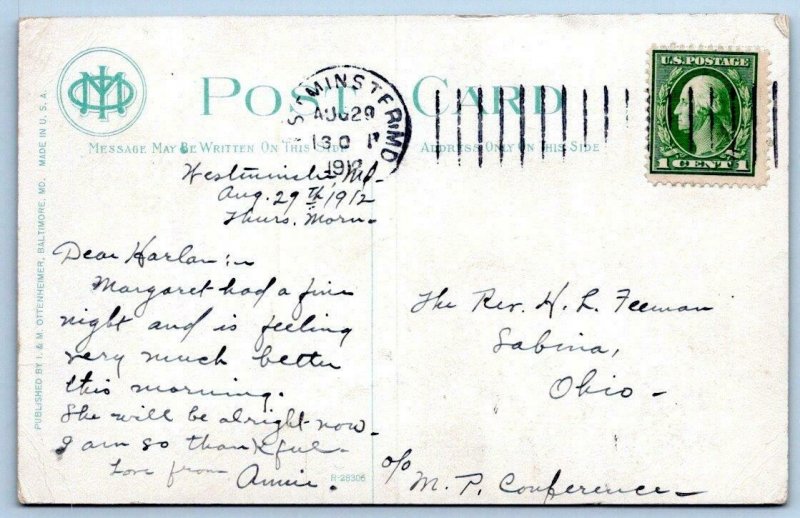 POST CARD
MESSAGE MAY BE WRITTEN ON THIS SIDE
ADDRESS ONLY ON THIS SIDE
WESTMINSTER, MD.
AUG 29
130 P
1912
U.S. POSTAGE
1 CENT 1
PUBLISHED BY I. & M. OTTENHEIMER, BALTIMORE, MD. MADE IN U.S.A.
Westminster, Md.
Aug. 29th, 1912
Thurs. Morn.
Dear Harlan:~
Margaret had a fine
night and is feeling
very much better
this morning.
She will be alright now.
I am so thankful.
Love from Annie.
R-28306
The Rev. H. L. Feeman
Sabina,
Ohio -
c/o M. P. Conference